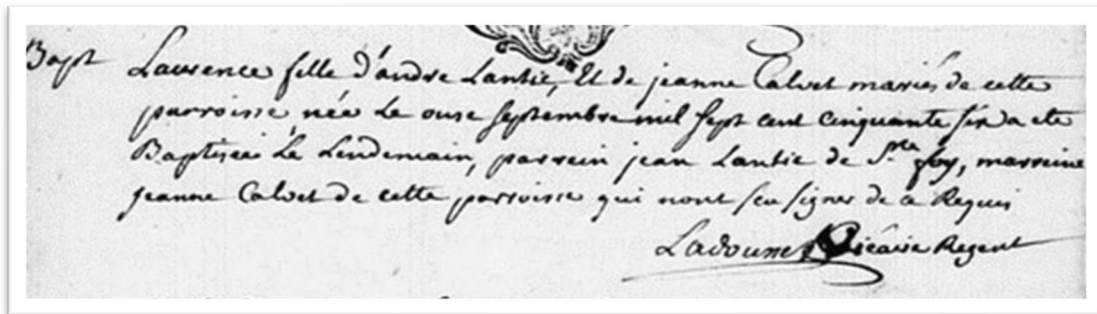 Bapt Laurence fille d'andre Lantie, Et de jeanne Calvet mariés de cette
parroisse née Le onse septembre mil sept cent cinquante six a ete
Baptisée Le Lendemain, parrein jean Lantie de Ste foy, marreine
jeanne Calvet de cette parroisse qui nont sçu signer de ce Requis
Vicaire Regent